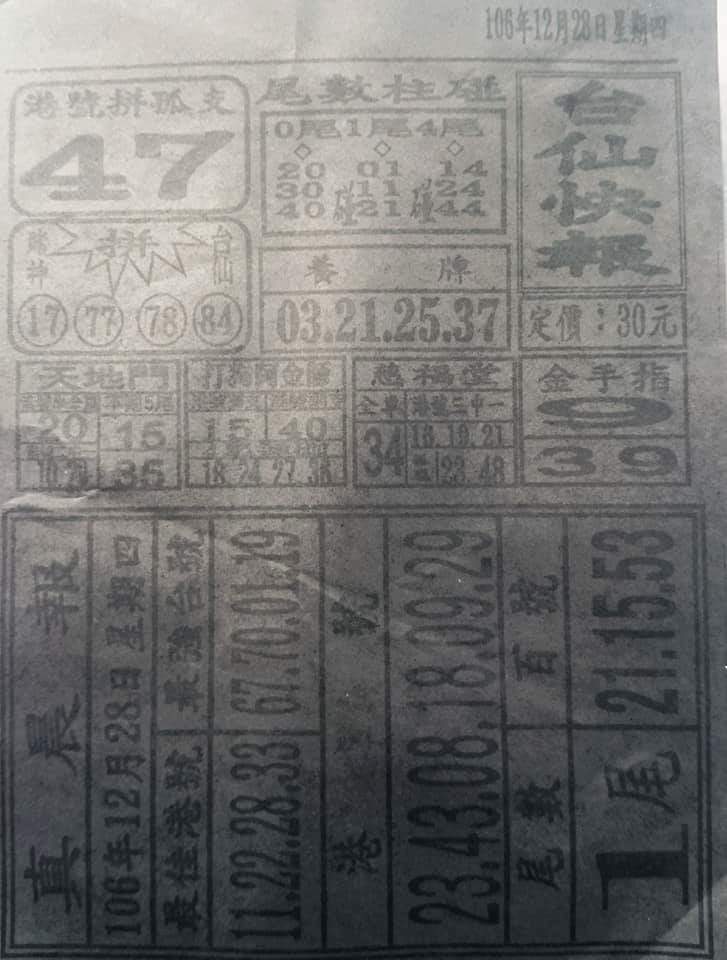 106年12月28日星期四
港號拼孤支
47
尾數柱碰
0尾1尾4尾
20 01 14
30碰11碰24
40 21 44
台仙快報
拼
台仙
17 77 78 84
養牌
03.21.25.37
定價：30元
天地門
20 15
35
15 40
18 24 27 36
慈福堂
全車 港號二中一
34
18.19.21
23.48
金手指
9
39
真晨報
106年12月28日星期四
最佳港號 最強台號
11.22.28.33 67.70.01.19
港號
23.43.08.18.09.29
尾數 百號
1尾 21.15.53